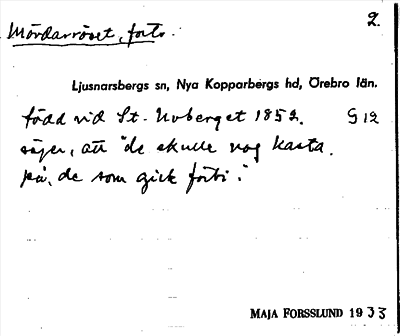 2.
Mördarröset, forts.
Ljusnarsbergs sn, Nya Kopparbergs hd, Örebro län.
född vid St. Uvberget 1852. G 12
säger, att "de skulle nog kasta
på, de som gick förbi".
MAJA FORSSLUND 1933